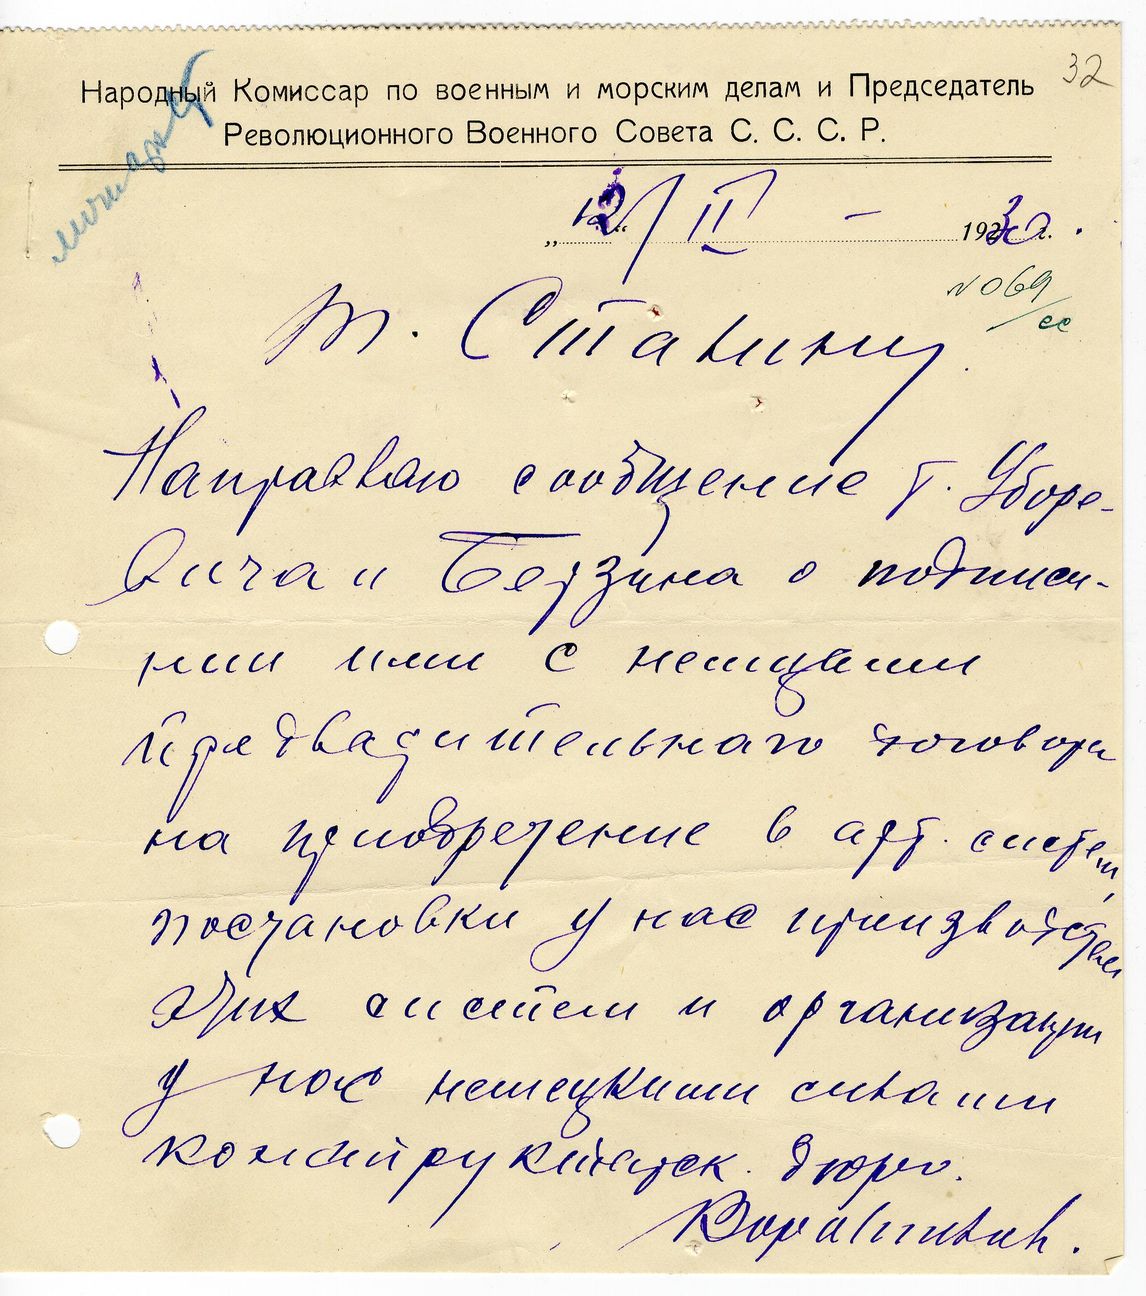 32
Народный Комиссар по военным и морским делам и Председатель
Революционного Военного Совета С. С. С. Р.
„12“/II – 1930 г.
№ 069/сс
т. Сталину
Направляю сообщение т. Уборе-
вича и Берзина о подписа-
нии ими с немцами
предварительного договора
на приобретение 6 арт. систем,
постановки у нас производства
этих систем и организации
у нас немецкими силами
конструкторск. бюро.
Ворошилов.